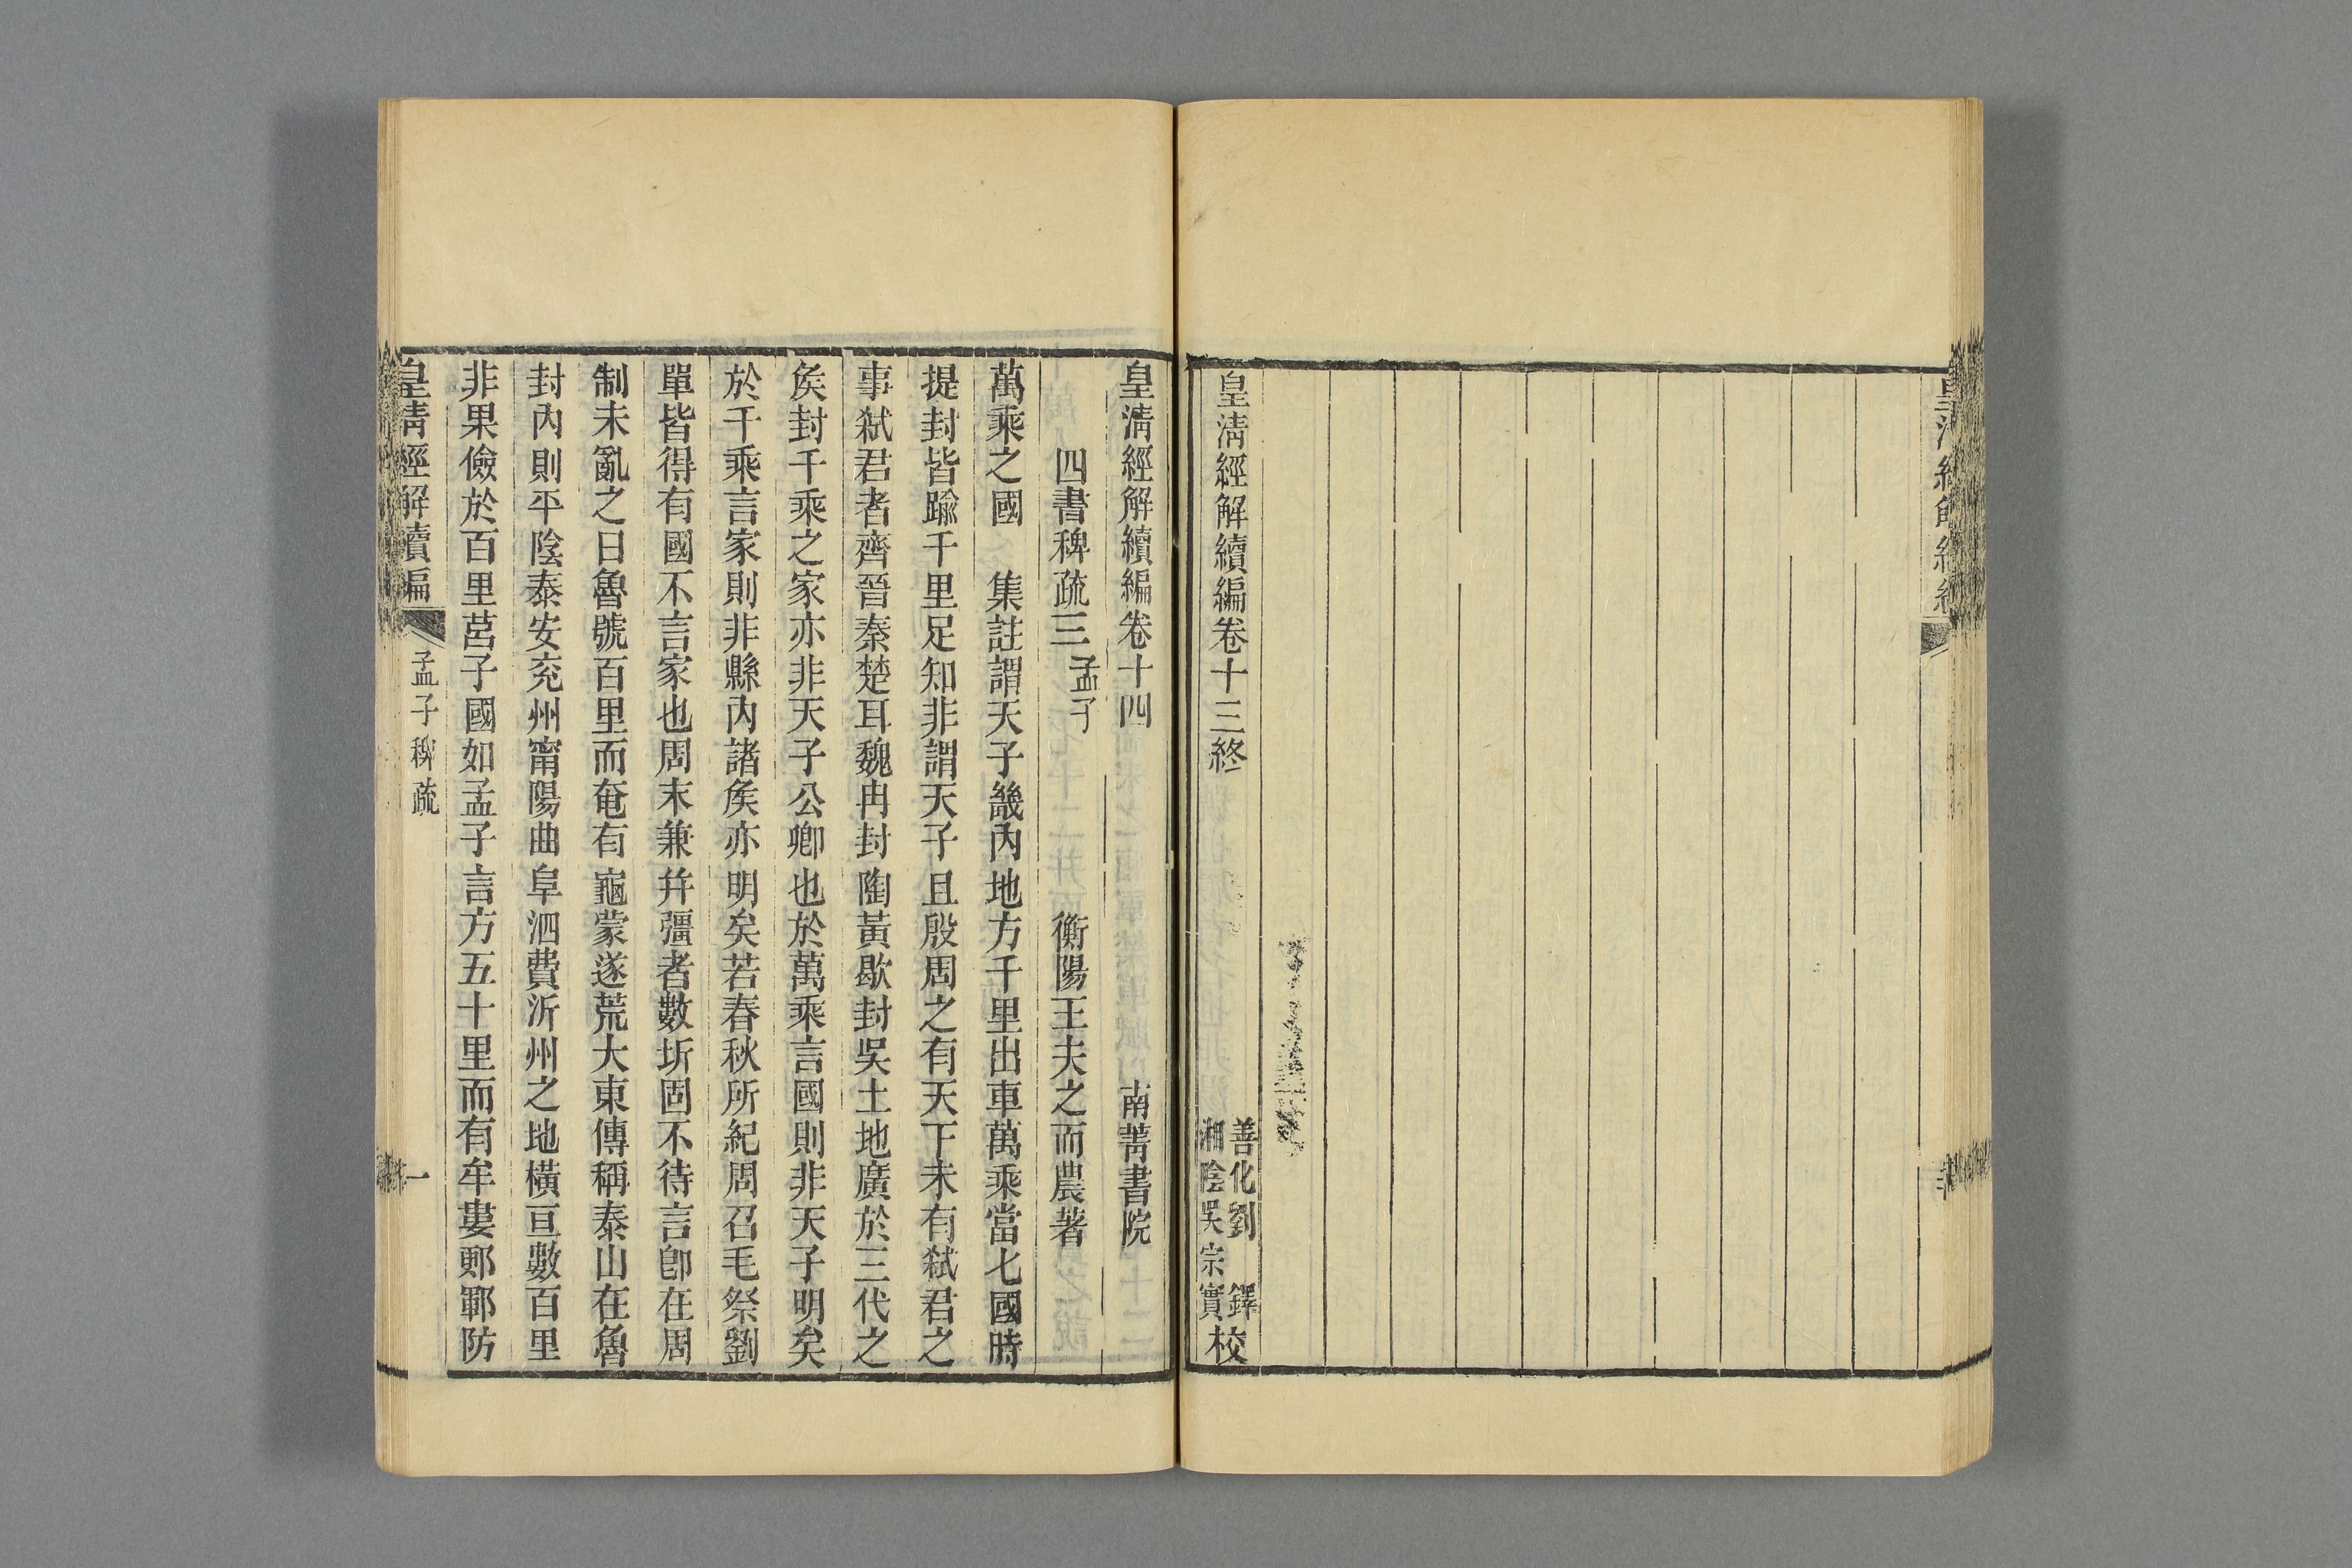 皇清經解續編卷十三終
善化劉 鐸
湘陰吳宗實
校
皇清經解續編卷十四 南菁書院
四書稗疏三 孟子 衡陽王夫之而農著
萬乘之國 集註謂天子畿內地方千里出車萬乘當七國時
提封皆踰千里足知非謂天子且殷周之有天下未有弒君之
事弒君者齊晉秦楚耳魏冉封陶黃歇封吳土地廣於三代之
矦封千乘之家亦非天子公卿也於萬乘言國則非天子明矣
於千乘言家則非縣內諸矦亦明矣若春秋所紀周召毛祭劉
單皆得有國不言家也周末兼并彊者數圻固不待言卽在周
制未亂之日魯號百里而奄有龜蒙遂荒大東傳稱泰山在魯
封內則平陰泰安兖州甯陽曲阜泗費沂州之地橫亘數百里
非果儉於百里莒子國如孟子言方五十里而有牟婁鄆鄣防
皇清經解續編 孟子稗疏 一